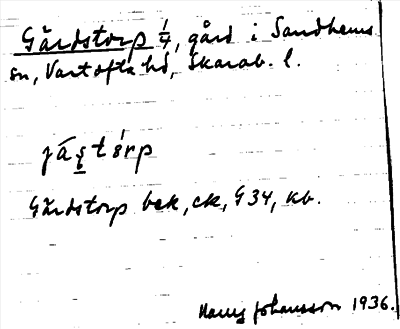 Gärdstorp 1/4, gård i Sandhems
sn, Vartofta hd, Skarab. l.
Gärdstorp bek, ck, G 34, kb.
Harry Johansson 1936.